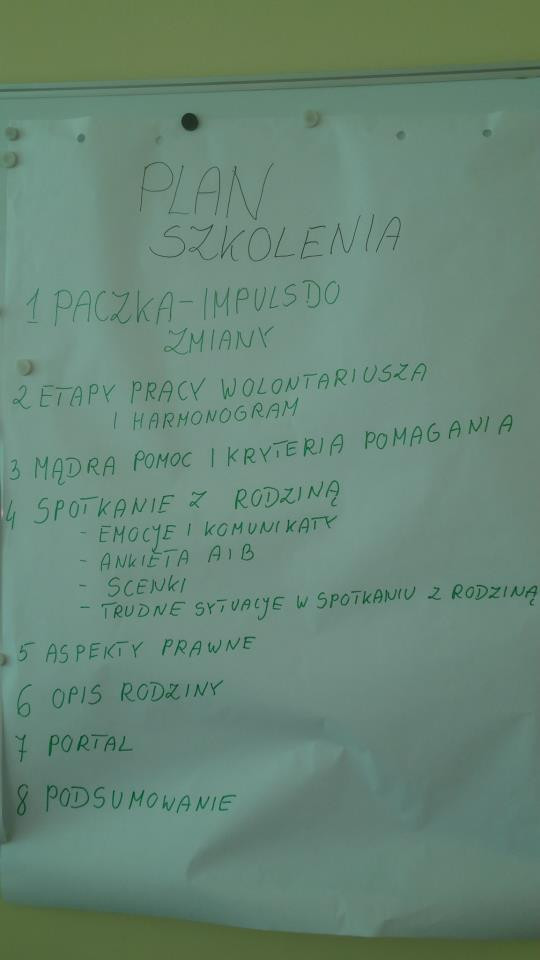 PLAN
SZKOLENIA
1 PACZKA - IMPULS DO
ZMIANY
2 ETAPY PRACY WOLONTARIUSZA
I HARMONOGRAM
3 MĄDRA POMOC I KRYTERIA POMAGANIA
4 SPOTKANIE Z RODZINĄ
- EMOCJE I KOMUNIKATY
- ANKIETA A I B
- SCENKI
- TRUDNE SYTUACJE W SPOTKANIU Z RODZINĄ
5 ASPEKTY PRAWNE
6 OPIS RODZINY
7 PORTAL
8 PODSUMOWANIE